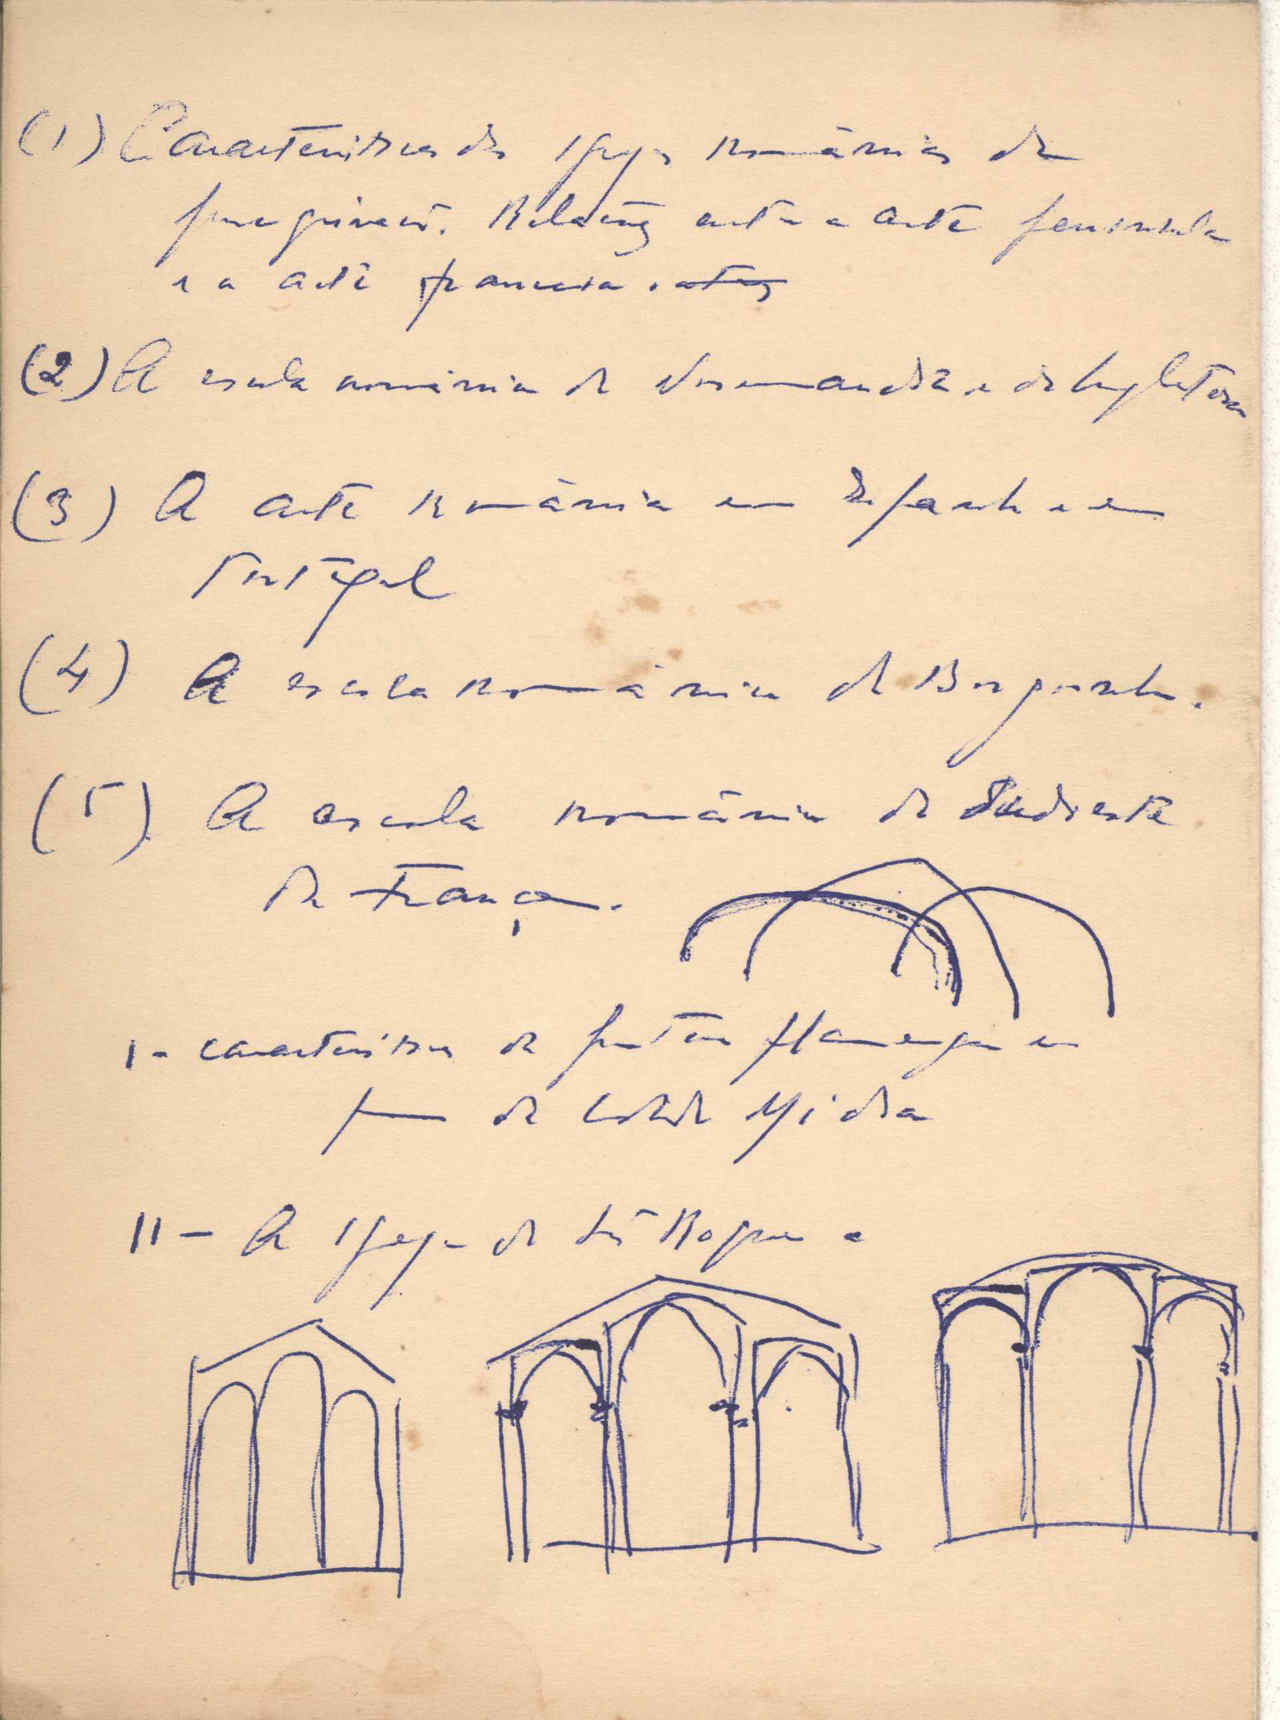 (1) Características das Igrejas românicas de
peregrinação. Relações entre a arte peninsular
e a arte francesa.
(2) A escola românica da Normandia e da Inglaterra
(3) A arte românica em Espanha e em
Portugal
(4) A escola românica da Borgonha.
(5) A escola românica do Sudoeste
da França.
I - características da pintura flamenga em
fim da Idade Média
II - A Igreja de São Roque e